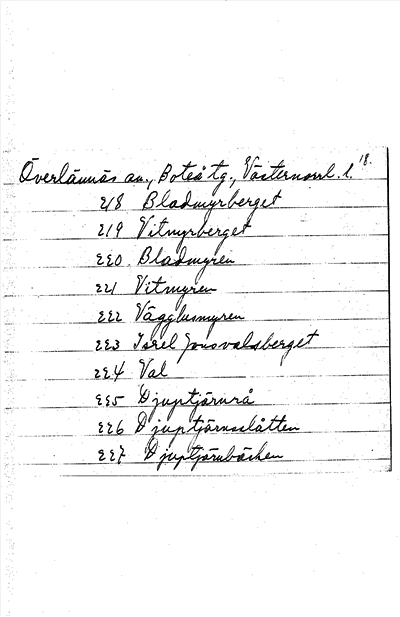 Överlännäs sn., Boteå tg., Västernorrl. l. 18.
218 Bladmyrberget
219 Vitmyrberget
220 Bladmyren
221 Vitmyren
222 Vägglusmyren
223 Isrel Jonsvalsberget
224 Val
225 Djuptjärnrå
226 Djuptjärnsslåtten
227 Djuptjärnbäcken